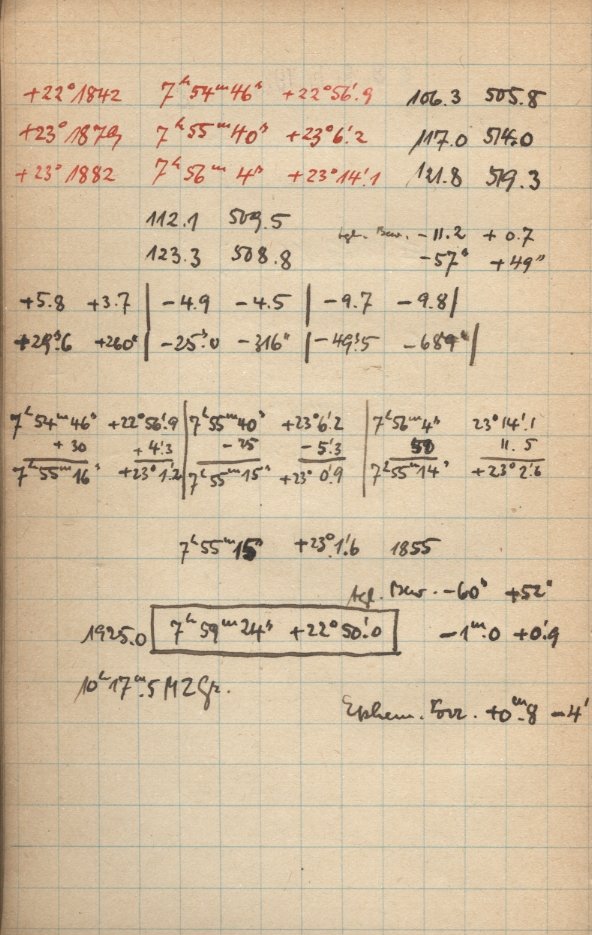 +22°1842 7ʰ54ᵐ46ˢ +22°56'.9 106.3 505.8
+23°1879 7ʰ55ᵐ40ˢ +23°6'.2 117.0 514.0
+23°1882 7ʰ56ᵐ4ˢ +23°14'.1 121.8 519.3
112.1 509.5
tgl. Bew. -11.2 +0.7
123.3 508.8
-57ˢ +49"
+5.8 +3.7 | -4.9 -4.5 | -9.7 -9.8 |
+29ˢ.6 +260" | -25ˢ.0 -316" | -49ˢ.5 -689" |
7ʰ54ᵐ46ˢ +22°56'.9 | 7ʰ55ᵐ40ˢ +23°6'.2 | 7ʰ56ᵐ4ˢ 23°14'.1
+30 +4'.3 | -25 -5'.3 | 50 11.5
7ʰ55ᵐ16ˢ +23°1'.2 | 7ʰ55ᵐ15ˢ +23°0'.9 | 7ʰ55ᵐ14ˢ +23°2'.6
7ʰ55ᵐ15ˢ +23°1'.6 1855
tgl. Bew. -60ˢ +52"
1925.0 7ʰ59ᵐ24ˢ +22°50'.0 -1ᵐ.0 +0'.9
10ʰ17ᵐ.5 MZGr.
Ephem. Korr. +0ᵐ.8 -4'